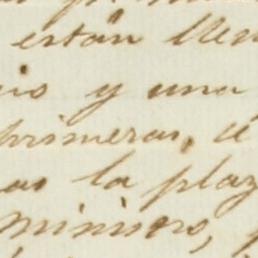 están llen
io y una
primeras, a
as la plaz
ministros,